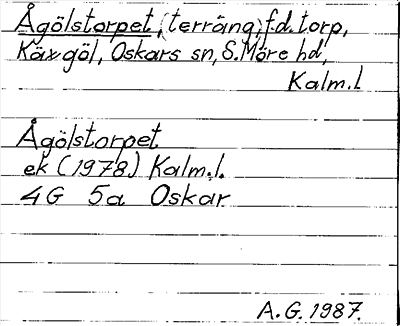 Ågölstorpet, (terräng, f.d. torp,
Käxgöl, Oskars sn, S. Möre hd,
Kalm.l
Ågölstorpet
ek (1978) Kalm.l.
4G 5a Oskar
A.G. 1987.